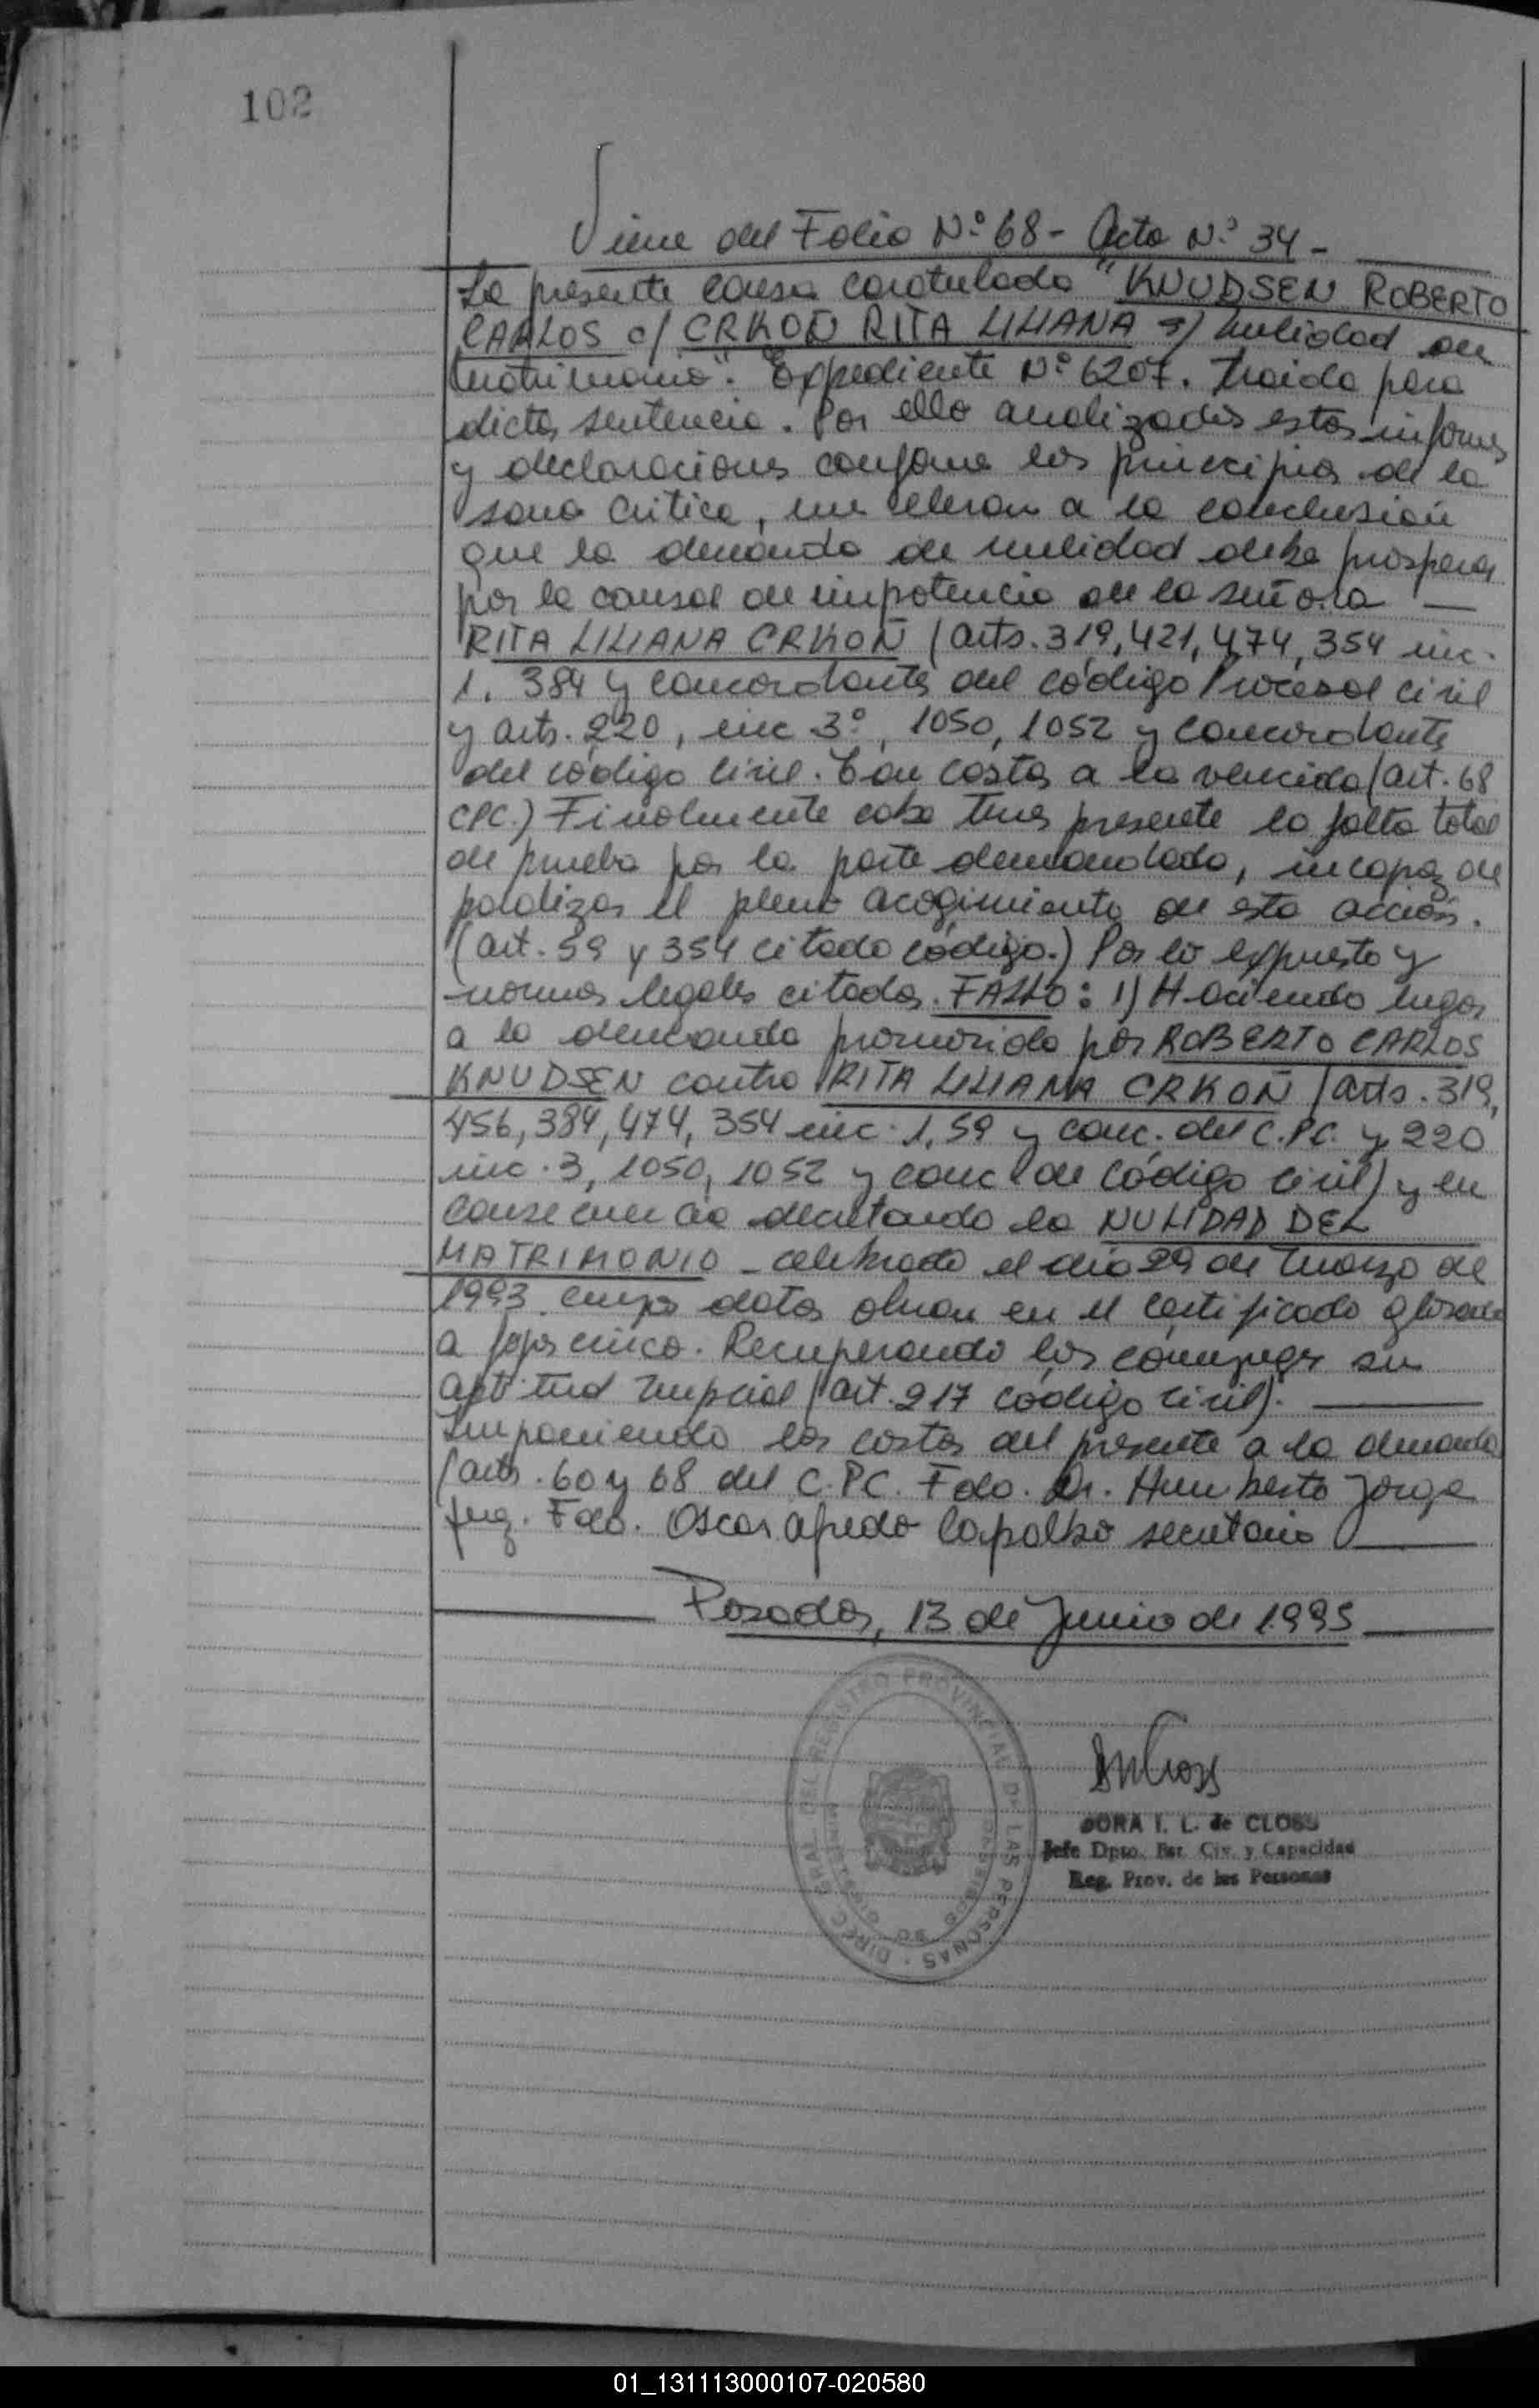 102
Viene del Folio Nº 68 - Acta Nº 34 -
La presente causa caratulada "KNUDSEN ROBERTO
CARLOS c/ CRKOÑ RITA LILIANA s/ nulidad de
matrimonio". Expediente Nº 6207. traida para
dictar sentencia. Por ello analizados estos informes
y declaraciones conforme los principios de la
sana critica, me llevan a la conclusión
que la demanda de nulidad debe prosperar
por la causal de impotencia de la señora
RITA LILIANA CRKOÑ (arts. 319, 421, 474, 354 inc.
1. 384 y concordantes del código Procesal civil
y arts. 220, inc 3º, 1050, 1052 y concordantes
del código Civil. Con costas a la vencida (art. 68
CPC.) Finalmente cabe tener presente la falta total
de prueba por la parte demandada, incapaz de
paralizar el pleno acogimiento de esta acción.
(art. 59 y 354 citado código.) Por lo expuesto y
normas legales citadas. FALLO: 1) Haciendo lugar
a la demanda promovida por ROBERTO CARLOS
KNUDSEN contra RITA LILIANA CRKOÑ (arts. 319,
456, 384, 474, 354 inc. 1, 59 y conc. del C.P.C. y 220
inc. 3, 1050, 1052 y conc de Código Civil) y en
consecuencia decretando la NULIDAD DEL
MATRIMONIO - celebrado el día 29 de Marzo de
1993 cuyos datos obran en el certificado glosado
a fojas cinco. Recuperando los conyuges su
aptitud nupcial (art. 217 código Civil).
Imponiendo las costas del presente a la demanda
(arts. 60 y 68 del C.P.C. Fdo. Dr. Humberto Jorge
Juez. Fdo. Oscar Alfredo Capalbo secretario
Posadas, 13 de Junio de 1.995
DIREC. GRAL. DEL REGISTRO PROVINCIAL DE LAS PERSONAS
DORA I. L. de CLOSS
Jefe Dpto. Est. Civ. y Capacidad
Reg. Prov. de las Personas
01_131113000107-020580